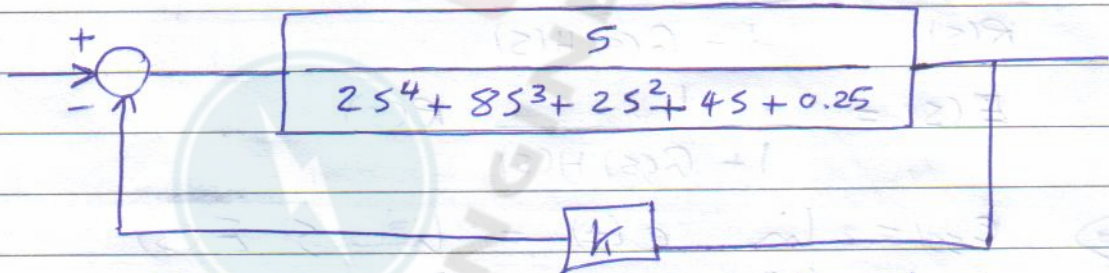 +
S
-
2S⁴ + 8S³ + 2S² + 4S + 0.25
K